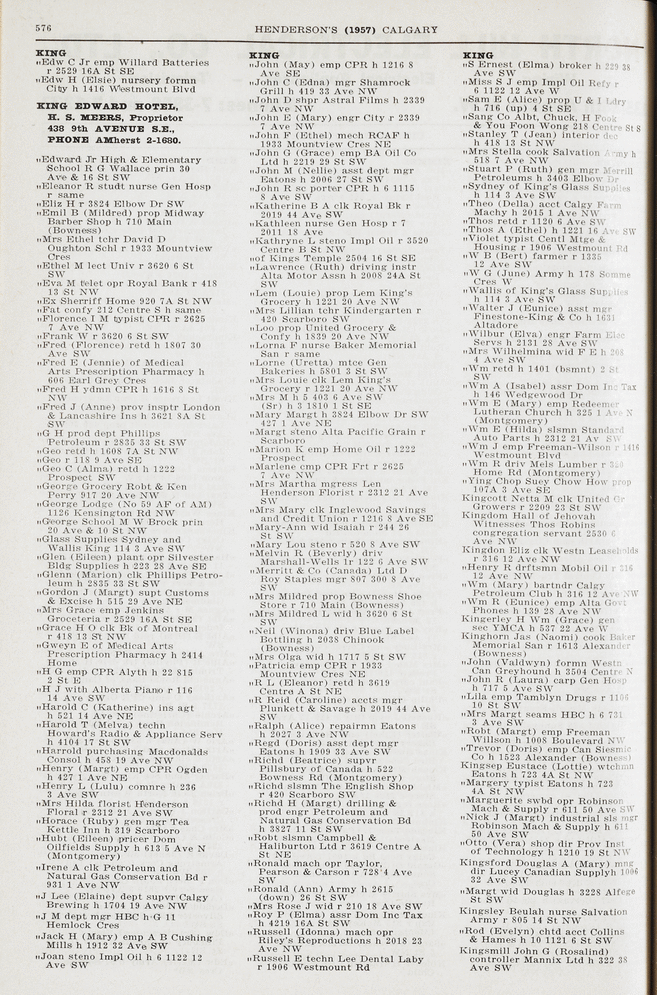 576
HENDERSON'S (1957) CALGARY
KING
"Edw C Jr emp Willard Batteries
r 2529 16A St SE
"Edw H (Elsie) nursery formn
City h 1416 Westmount Blvd
KING EDWARD HOTEL,
H. S. MEERS, Proprietor
438 9th AVENUE S.E.,
PHONE AMherst 2-1680.
"Edward Jr High & Elementary
School R G Wallace prin 30
Ave & 16 St SW
"Eleanor R studt nurse Gen Hosp
r same
"Eliz H r 3824 Elbow Dr SW
"Emil B (Mildred) prop Midway
Barber Shop h 710 Main
(Bowness)
"Mrs Ethel tchr David D
Oughton Schl r 1933 Mountview
Cres
"Ethel M lect Univ r 3620 6 St
SW
"Eva M telet opr Royal Bank r 418
13 St NW
"Ex Sherriff Home 920 7A St NW
"Fat confy 212 Centre S h same
"Florence I M typist CPR r 2625
7 Ave NW
"Frank W r 3620 6 St SW
"Fred (Florence) retd h 1807 30
Ave SW
"Fred E (Jennie) of Medical
Arts Prescription Pharmacy h
606 Earl Grey Cres
"Fred H ydmn CPR h 1616 8 St
NW
"Fred J (Anne) prov insptr London
& Lancashire Ins h 3621 8A St
SW
"G H prod dept Phillips
Petroleum r 2835 33 St SW
"Geo retd h 1608 7A St NW
"Geo r 118 9 Ave SE
"Geo C (Alma) retd h 1222
Prospect SW
"George Grocery Robt & Ken
Perry 917 20 Ave NW
"George Lodge (No 59 AF of AM)
1126 Kensington Rd NW
"George School M W Brock prin
20 Ave & 10 St NW
"Glass Supplies Sydney and
Wallis King 114 3 Ave SW
"Glen (Eileen) plant opr Silvester
Bldg Supplies h 223 28 Ave SE
"Glenn (Marion) clk Phillips Petro-
leum h 2835 33 St SW
"Gordon J (Margt) supt Customs
& Excise h 515 29 Ave NE
"Mrs Grace emp Jenkins
Groceteria r 2529 16A St SE
"Grace H O clk Bk of Montreal
r 418 13 St NW
"Gweyn E of Medical Arts
Prescription Pharmacy h 2414
Home
"H G emp CPR Alyth h 22 815
2 St E
"H J with Alberta Piano r 116
14 Ave SW
"Harold C (Katherine) ins agt
h 521 14 Ave NE
"Harold T (Melva) techn
Howard's Radio & Appliance Serv
h 4104 17 St SW
"Harrold purchasing Macdonalds
Consol h 458 19 Ave NW
"Henry (Margt) emp CPR Ogden
h 427 1 Ave NE
"Henry L (Lulu) comnre h 236
3 Ave SW
"Mrs Hilda florist Henderson
Floral r 2312 21 Ave SW
"Horace (Ruby) gen mgr Tea
Kettle Inn h 319 Scarboro
"Hubt (Eileen) pricer Dom
Oilfields Supply h 613 5 Ave N
(Montgomery)
"Irene A clk Petroleum and
Natural Gas Conservation Bd r
931 1 Ave NW
"J Lee (Elaine) dept supvr Calgy
Brewing h 1704 19 Ave NW
"J M dept mgr HBC h G 11
Hemlock Cres
"Jack H (Mary) emp A B Cushing
Mills h 1912 32 Ave SW
"Joan steno Impl Oil h 6 1122 12
Ave SW
KING
"John (May) emp CPR h 1216 8
Ave SE
"John C (Edna) mgr Shamrock
Grill h 419 33 Ave NW
"John D shpr Astral Films h 2339
7 Ave NW
"John E (Mary) engr City r 2339
7 Ave NW
"John F (Ethel) mech RCAF h
1933 Mountview Cres NE
"John G (Grace) emp BA Oil Co
Ltd h 2219 29 St SW
"John M (Nellie) asst dept mgr
Eatons h 2006 27 St SW
"John R sc porter CPR h 6 1115
8 Ave SW
"Katherine B A clk Royal Bk r
2019 44 Ave SW
"Kathleen nurse Gen Hosp r 7
2011 18 Ave
"Kathryne L steno Impl Oil r 3520
Centre B St NW
"of Kings Temple 2504 16 St SE
"Lawrence (Ruth) driving instr
Alta Motor Assn h 2008 24A St
SW
"Lem (Louie) prop Lem King's
Grocery h 1221 20 Ave NW
"Mrs Lillian tchr Kindergarten r
420 Scarboro SW
"Loo prop United Grocery &
Confy h 1839 20 Ave NW
"Lorna F nurse Baker Memorial
San r same
"Lorne (Uretta) mtce Gen
Bakeries h 5801 3 St SW
"Mrs Louie clk Lem King's
Grocery r 1221 20 Ave NW
"Mrs M h 5 403 6 Ave SW
(Sr) h 3 1810 1 St SE
"Mary Margt h 3824 Elbow Dr SW
427 1 Ave NE
"Margt steno Alta Pacific Grain r
Scarboro
"Marion K emp Home Oil r 1222
Prospect
"Marlene emp CPR Frt r 2625
7 Ave NW
"Mrs Martha mgress Len
Henderson Florist r 2312 21 Ave
SW
"Mrs Mary clk Inglewood Savings
and Credit Union r 1216 8 Ave SE
"Mary-Ann wid Isaiah r 244 26
St SW
"Mary Lou steno r 520 8 Ave SW
"Melvin R (Beverly) driv
Marshall-Wells 1r 122 6 Ave SW
"Merritt & Co (Canada) Ltd D
Roy Staples mgr 807 300 8 Ave
SW
"Mrs Mildred prop Bowness Shoe
Store r 710 Main (Bowness)
"Mrs Mildred L wid h 3620 6 St
SW
"Neil (Winona) driv Blue Label
Bottling h 2038 Chinook
(Bowness)
"Mrs Olga wid h 1717 5 St SW
"Patricia emp CPR r 1933
Mountview Cres NE
"R L (Eleanor) retd h 3619
Centre A St NE
"R Reid (Caroline) accts mgr
Plunkett & Savage h 2019 44 Ave
SW
"Ralph (Alice) repairmn Eatons
h 2027 3 Ave NW
"Regd (Doris) asst dept mgr
Eatons h 1909 33 Ave SW
"Richd (Beatrice) supvr
Pillsbury of Canada h 522
Bowness Rd (Montgomery)
"Richd slsmn The English Shop
r 420 Scarboro SW
"Richd H (Margt) drilling &
prod engr Petroleum and
Natural Gas Conservation Bd
h 3827 11 St SW
"Robt slsmn Campbell &
Haliburton Ltd r 3619 Centre A
St NE
"Ronald mach opr Taylor,
Pearson & Carson r 728 4 Ave
SW
"Ronald (Ann) Army h 2615
(down) 26 St SW
"Mrs Rose J wid r 210 18 Ave SW
"Roy P (Elma) assr Dom Inc Tax
h 4219 16A St SW
"Russell (Idonna) mach opr
Riley's Reproductions h 2018 23
Ave NW
"Russell E techn Lee Dental Laby
r 1906 Westmount Rd
KING
"S Ernest (Elma) broker h 229 38
Ave SW
"Miss S J emp Impl Oil Refy r
6 1122 12 Ave W
"Sam E (Alice) prop U & I Ldry
h 716 (up) 4 St SE
"Sang Co Albt, Chuck, H Fook
& You Foon Wong 218 Centre St S
"Stanley T (Jean) interior dec
h 418 13 St NW
"Mrs Stella cook Salvation Army h
518 7 Ave NW
"Stuart P (Ruth) gen mgr Merrill
Petroleums h 3403 Elbow Dr
"Sydney of King's Glass Supplies
h 114 3 Ave SW
"Theo (Della) acct Calgy Farm
Machy h 2015 1 Ave NW
"Thos retd r 1120 6 Ave SW
"Thos A (Ethel) h 1221 16 Ave SW
"Violet typist Centl Mtge &
Housing r 1906 Westmount Rd
"W B (Bert) farmer r 1335
12 Ave SW
"W G (June) Army h 178 Somme
Cres W
"Wallis of King's Glass Supplies
h 114 3 Ave SW
"Walter J (Eunice) asst mgr
Finestone-King & Co h 1631
Altadore
"Wilbur (Elva) engr Farm Elec
Servs h 2131 28 Ave SW
"Mrs Wilhelmina wid F E h 268
4 Ave SW
"Wm retd h 1401 (bsmnt) 2 St
SW
"Wm A (Isabel) assr Dom Inc Tax
h 146 Wedgewood Dr
"Wm E (Mary) emp Redeemer
Lutheran Church h 325 1 Ave N
(Montgomery)
"Wm E (Hilda) slsmn Standard
Auto Parts h 2312 21 Av SW
"Wm J emp Freeman-Wilson r 1416
Westmount Blvd
"Wm R driv Mels Lumber r
Home Rd (Montgomery)
"Ying Chop Suey Chow How prop
107A 3 Ave SE
Kingcott Netta M clk United Gr
Growers r 2209 23 St SW
Kingdom Hall of Jehovah
Witnesses Thos Robins
congregation servant 2530 6
Ave NW
Kingdon Eliz clk Westn Leaseholds
r 316 12 Ave NW
"Henry R drftsmn Mobil Oil r 316
12 Ave NW
"Wm (Mary) bartndr Calgy
Petroleum Club h 316 12 Ave NW
"Wm R (Eunice) emp Alta Govt
Phones h 139 28 Ave NW
Kingerley H Wm (Grace) gen
sec YMCA h 537 22 Ave W
Kinghorn Jas (Naomi) cook Baker
Memorial San r 1613 Alexander
(Bowness)
"John (Valdwyn) formn Westn
Can Greyhound h 3504 Centre N
"John R (Laura) carp Gen Hosp
h 717 5 Ave SW
"Lila emp Tamblyn Drugs r 1106
10 St SW
"Mrs Margt seams HBC h 6 731
3 Ave SW
"Robt (Margt) emp Freeman
Willson h 1008 Boulevard NW
"Trevor (Doris) emp Can Siesmic
Co h 1523 Alexander (Bowness)
Kingsep Eustace (Lottie) wtchmn
Eatons h 723 4A St NW
"Margery typist Eatons h 723
4A St NW
"Marguerite swbd opr Robinson
Mach & Supply r 611 50 Ave SW
"Nick J (Margt) industrial sls mgr
Robinson Mach & Supply h 611
50 Ave SW
"Otto (Vera) shop dir Prov Inst
of Technology h 1210 19 St NW
Kingsford Douglas A (Mary) mng
dir Lucey Canadian Supplyh 1006
32 Ave SW
"Margt wid Douglas h 3228 Alfege
St SW
Kingsley Beulah nurse Salvation
Army r 805 14 St NW
"Rod (Evelyn) chtd acct Collins
& Hames h 10 1121 6 St SW
Kingsmill John G (Rosalind)
controller Mannix Ltd h 322 38
Ave SW